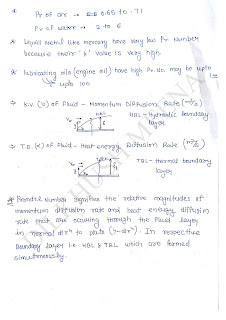 Pr of air → 0.65 to .71
Pr of water → 2 to 6
* Liquid metal like mercury have very low Pr Number
because their 'k' value is very high
* lubricating oils (engine oil) have high Pr. No. may be upto
upto 100
⇒ K.V. (ν) of Fluid - Momentum Diffusion Rate (m²/s)
HBL - Hydraulic boundary
layer
⇒ T.D. (α) of Fluid - Heat energy Diffusion Rate (m²/s)
TBL - thermal boundary
layer
* Prandtl Number signifies the relative magnitudes of
momentum diffusion rate and heat energy diffusion
rate that are occuring through the Fluid layer
in normal dirⁿ to plate (y-dirⁿ). In respective
Boundary layer i.e. HBL & TBL which are formed
simultaneously.